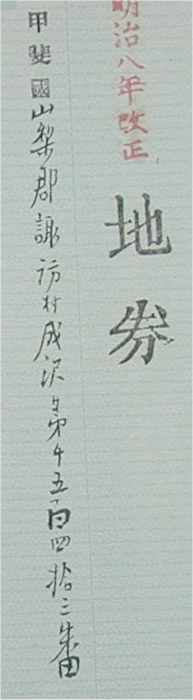 明治八年改正
地券
甲斐國山梨郡諏訪村成沢第千五百四拾三番